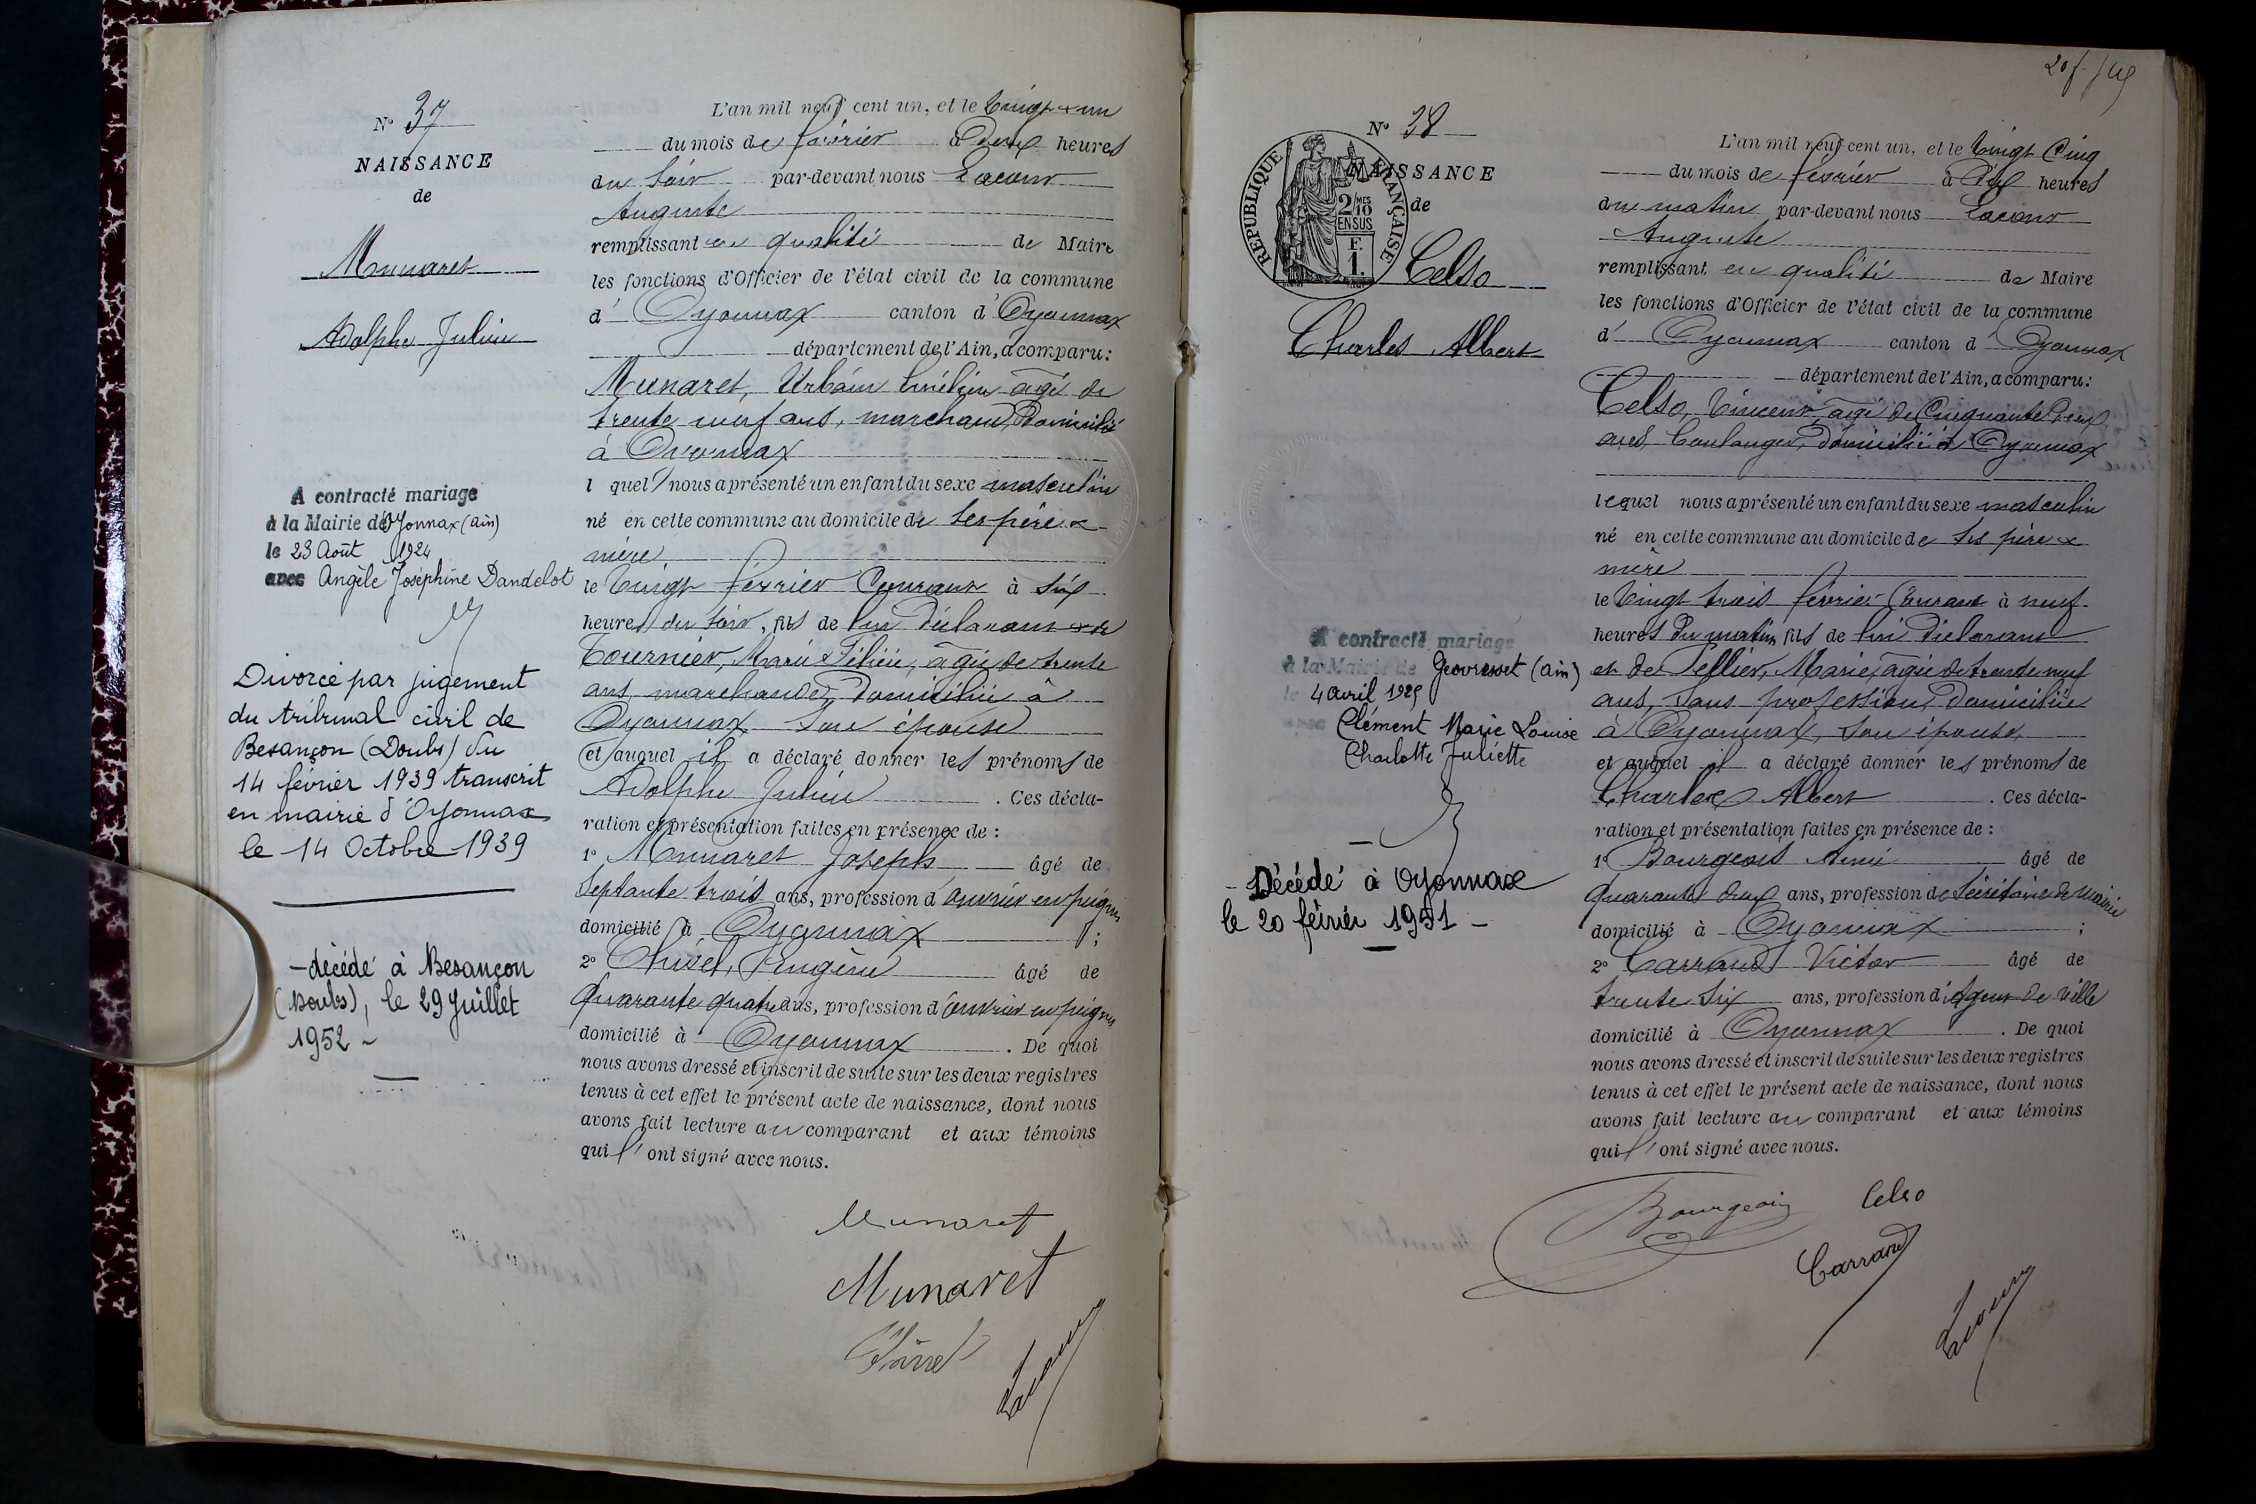 N° 37
NAISSANCE
de
Munaret
Adolphe Julien
A contracté mariage
à la Mairie de Oyonnax (ain)
le 23 Août 1924
avec Angèle Joséphine Dandelot
Divorcé par jugement
du tribunal civil de
Besançon (Doubs) du
14 février 1939 transcrit
en mairie d'Oyonnax
le 14 Octobre 1939
- décédé à Besançon
(Doubs), le 29 Juillet
1952 -
L'an mil neuf cent un, et le Vingt & un
du mois de février à Deux heures
du soir par-devant nous Lacour
Auguste
remplissant en qualité de Maire
les fonctions d'Officier de l'état civil de la commune
d' Oyonnax canton d'Oyonnax
département de l'Ain, a comparu:
Munaret, Urbain âgé de
trente neuf ans, marchand, Domicilié
à Oyonnax
lequel nous a présenté un enfant du sexe masculin
né en cette commune au domicile de ses père &
mère
le Vingt février Courant à six
heures du soir, fils de lui Déclarant & de
Tournier, Marie Félicie, âgée de trente
ans, marchande, Domiciliée à
Oyonnax son épouse
et auquel il a déclaré donner les prénoms de
Adolphe Julien . Ces décla-
ration et présentation faites en présence de :
1° Munaret Joseph âgé de
septante trois ans, profession d'ouvrier en peignes
domicilié à Oyonnax ;
2° Eugène âgé de
Quarante quatre ans, profession d'ouvrier en peignes
domicilié à Oyonnax . De quoi
nous avons dressé et inscrit de suite sur les deux registres
tenus à cet effet le présent acte de naissance, dont nous
avons fait lecture au comparant et aux témoins
qui l'ont signé avec nous.
Munaret
Munaret
Lacour
20f.
N° 38
NAISSANCE
de
REPUBLIQUE FRANÇAISE
2/10 MES
EN SUS
F.
1.
Celso
Charles Albert
A contracté mariage
à la Mairie de Geovresset (ain)
le 4 avril 1925
avec Clément Marie Louise
Charlotte Juliette
- Décédé à Oyonnax
le 20 février 1951 -
L'an mil neuf cent un, et le Vingt Cinq
du mois de février à Dix heures
du matin par-devant nous Lacour
Auguste
remplissant en qualité de Maire
les fonctions d'Officier de l'état civil de la commune
d' Oyonnax canton d'Oyonnax
département de l'Ain, a comparu:
Celso, Vincent, âgé de Cinquante Deux
ans, boulanger, domicilié à Oyonnax
lequel nous a présenté un enfant du sexe masculin
né en cette commune au domicile de ses père &
mère
le Vingt trois février Courant à neuf
heures du matin fils de lui Déclarant
et de Tellier, Marie, âgée de trente neuf
ans, sans profession, Domiciliée
à Oyonnax, son épouse,
et auquel il a déclaré donner les prénoms de
Charles Albert . Ces décla-
ration et présentation faites en présence de :
1° Bourgeois Aimé âgé de
quarante deux ans, profession de Secrétaire de Mairie
domicilié à Oyonnax ;
2° Carrand Victor âgé de
trente six ans, profession d'Agent de Ville
domicilié à Oyonnax . De quoi
nous avons dressé et inscrit de suite sur les deux registres
tenus à cet effet le présent acte de naissance, dont nous
avons fait lecture au comparant et aux témoins
qui l'ont signé avec nous.
Bourgeois Celso
Carrand
Lacour